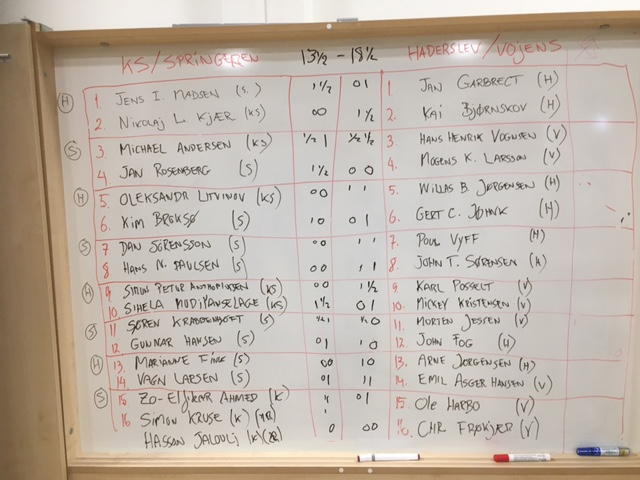 KS/SPRINGEREN 13½ - 18½ HADERSLEV/VOJENS
(H) 1. JENS I. MADSEN (S.) 1½ 01 1. JAN GARBRECT (H)
2. NIKOLAJ L. KJÆR (KS) 00 1½ 2. KAI BJØRNSKOV (H)
(S) 3. MICHAEL ANDERSEN (KS) ½ 1 ½ ½ 3. HANS HENRIK VOGNSEN (V)
4. JAN ROSENBERG (S) 1½ 00 4. MOGENS K. LARSSON (V)
(H) 5. OLEKSANDR LITVINOV (KS) 00 11 5. WILLAS B. JØRGENSEN (H)
6. KIM (S) 10 01 6. GERT C. JØHNK (H)
(S) 7. DAN SØRENSSON (S) 00 11 7. POUL VYFF (H)
8 HANS N. PAULSEN (S) 00 11 8. JOHN T. SØRENSEN (H)
(H) 9 SIMON PETUR (KS) 00 1½ 9 KARL POSSELT (V)
10. SIHELA MUDIYANSELAGE (KS) 1½ 01 10. MICKEY KRISTENSEN (V)
(S) 11 SØREN (S) ½1 ½0 11. MORTEN JESSEN (V)
12. GUNNAR HANSEN (S) 01 10 12. JOHN FOG (H)
(H) 13. MARIANNE FINK (S) 00 10 13. ARNE JØRGENSEN (H)
14. VAGN LARSEN (S) 01 11 14. EMIL ASGER HANSEN (V)
(S) 15 AHMED (K) 01 15. OLE HARBO (V)
16 SIMON KRUSE (K)
HASSAN (K) 0 00 16. CHR FRØKJÆR (V)